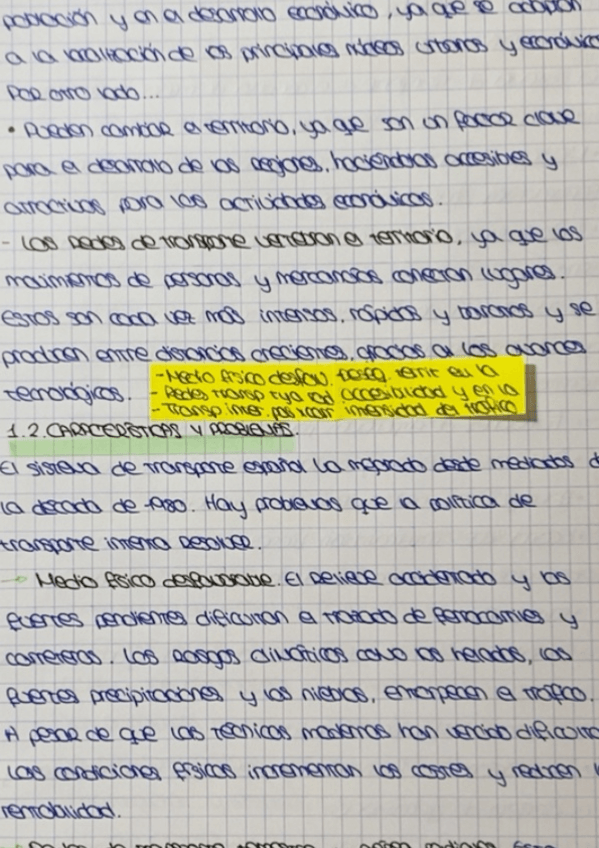 población y en el desarrollo económico, ya que se adaptan
a la localización de los principales núcleos urbanos y económicos
Por otro lado...
• Pueden cambiar el territorio, ya que son un factor clave
para el desarrollo de las regiones, haciéndolas accesibles y
atractivas para las actividades económicas.
- Las redes de transporte vertebran el territorio, ya que los
movimientos de personas y mercancías conectan lugares.
Estos son cada vez más intensos, rápidos y baratos y se
producen entre distancias crecientes, gracias a los avances
tecnológicos.
- Medio físico desfav.
- Redes transp accesibilidad y en la
- Transp inter. intensidad del tráfico
1.2. CARACTERÍSTICAS Y PROBLEMAS.
El sistema de transporte español ha mejorado desde mediados d
la década de 1980. Hay problemas que la política de
transporte intenta resolver.
→ Medio físico desfavorable. El relieve accidentado y las
fuertes pendientes dificultan el trazado de ferrocarriles y
carreteras. Los rasgos climáticos como las heladas, las
fuertes precipitaciones y las nieblas, entorpecen el tráfico.
A pesar de que las técnicas modernas han vencido dificulta
las condiciones físicas incrementan los costes y reducen l
rentabilidad.